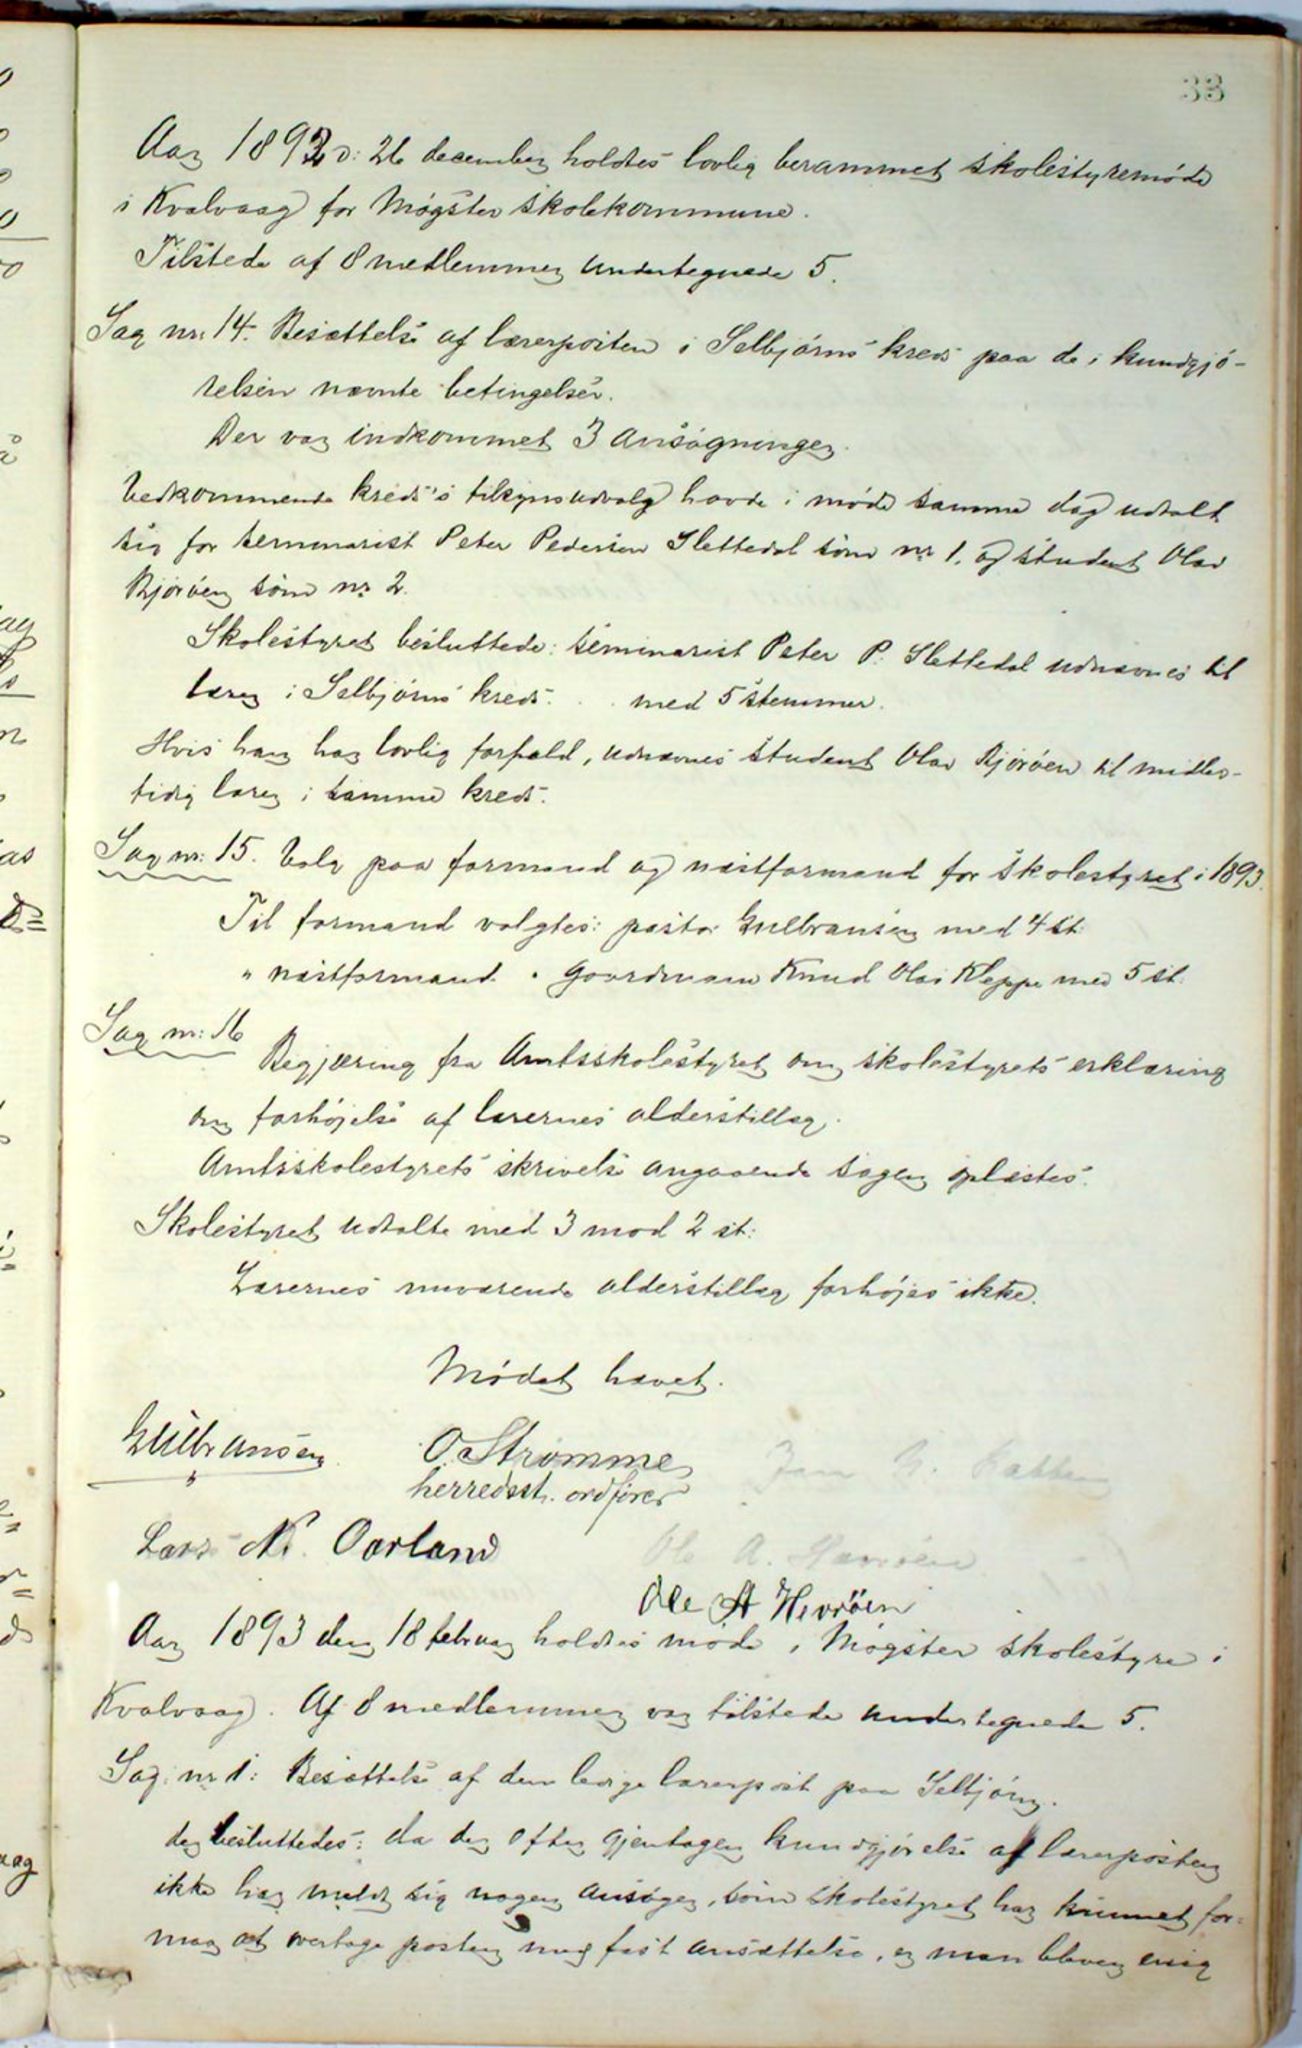 33
Aar 1892 d: 26 december holdtes lovlig berammet skolestyremøde
i Kvalvaag for Møgster skolekommune.
Tilstede af 8 medlemmer undertegnede 5.
Sag nr: 14. Besættelse af lærerposten i Selbjørns kreds paa de i kundgjø-
relsen nævnte betingelser.
Der var indkommet 3 ansøgninger.
Vedkommende kreds's tilsynsudvalg havde i møde samme dag udtalt
sig for seminarist Peter Pedersen Slettedal som nr 1. og student Olav
Bjorøen som nr 2.
Skolestyret besluttede: seminarist Peter P. Slettedal udnævnes til
lærer i Selbjørns kreds. . . med 5 stemmer.
Hvis han har lovlig forfald, udnævnes student Olav Bjorøen til midler-
tidig lærer i samme kreds.
Sag nr: 15. Valg paa formand og næstformand for skolestyret i 1893.
Til formand valgtes: pastor Gulbransen med 4 st:
" næstformand " Gaardmann Knud Olai Kleppe med 5 st:
Sag nr: 16
Begjæring fra Amtsskolestyret om skolestyrets erklæring
om forhøjelse af lærernes alderstillæg.
Amtsskolestyrets skrivelse angaaende sagen oplæstes.
Skolestyret udtalte med 3 mod 2 st:
Lærernes nuværende alderstillæg forhøjes ikke.
Mødet hævet.
Gulbransen O. Strømme
herredsst. ordfører
Lars N. Oarland
Ole A. Hevrøen
Ole A Hevrøen
Aar 1893 den 18 februar holdtes møde i Møgster skolestyre i
Kvalvaag. Af 8 medlemmer var tilstede undertegnede 5.
Sag nr 1: Besættelse af den ledige lærerpost paa Selbjørn.
der besluttedes: da der efter gjentagen kundgjørelse af lærerposten
ikke har meldt sig nogen ansøger, som skolestyret har kunnet for-
maa at overtage posten med fast ansættelse, er man bleven enig